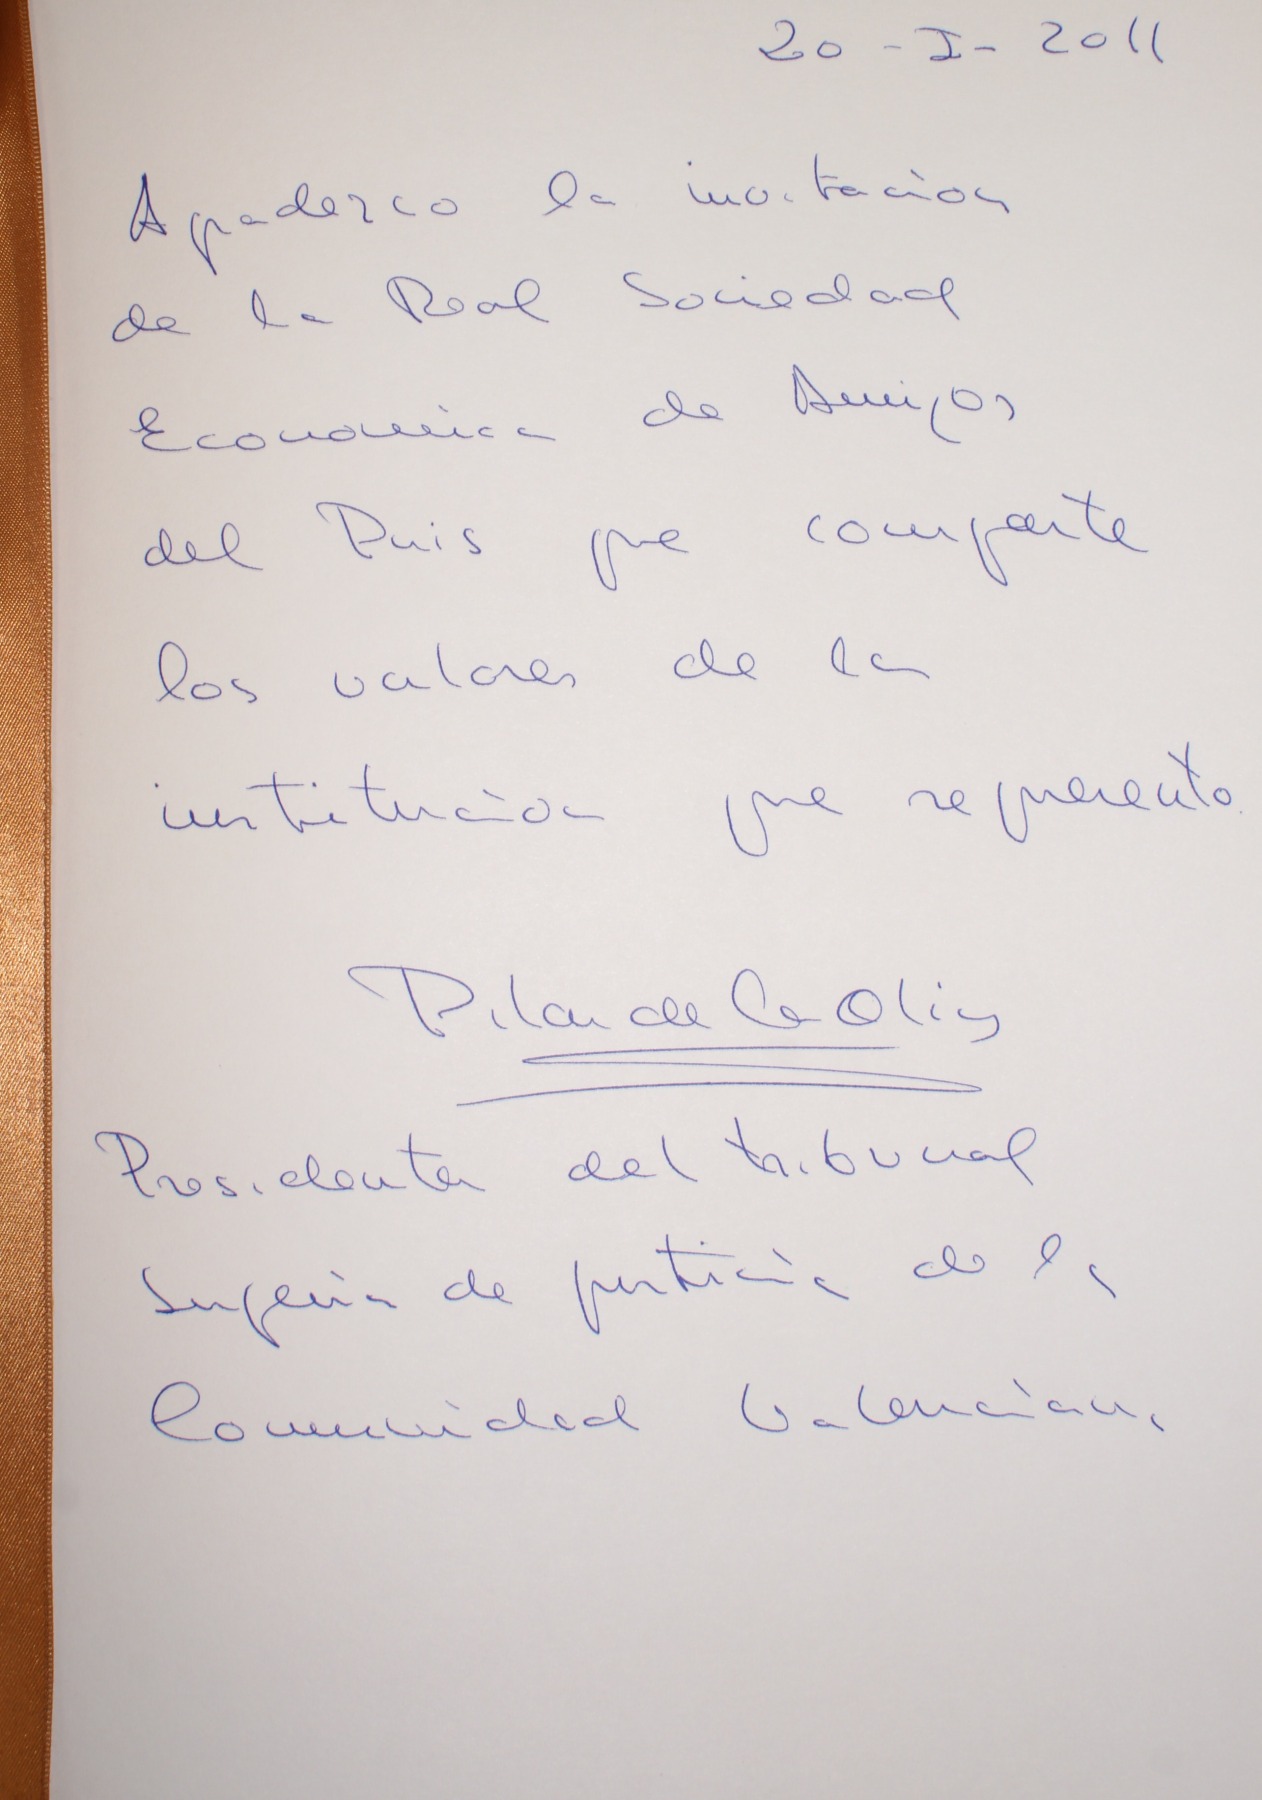 20 - I - 2011
Agradezco la invitacion
de la Real Sociedad
Economica de Amigos
del Pais que comparte
los valores de la
institucion que represento.
Pilar de la Oliva
Presidenta del tribunal
superior de justicia de la
Comunidad Valenciana